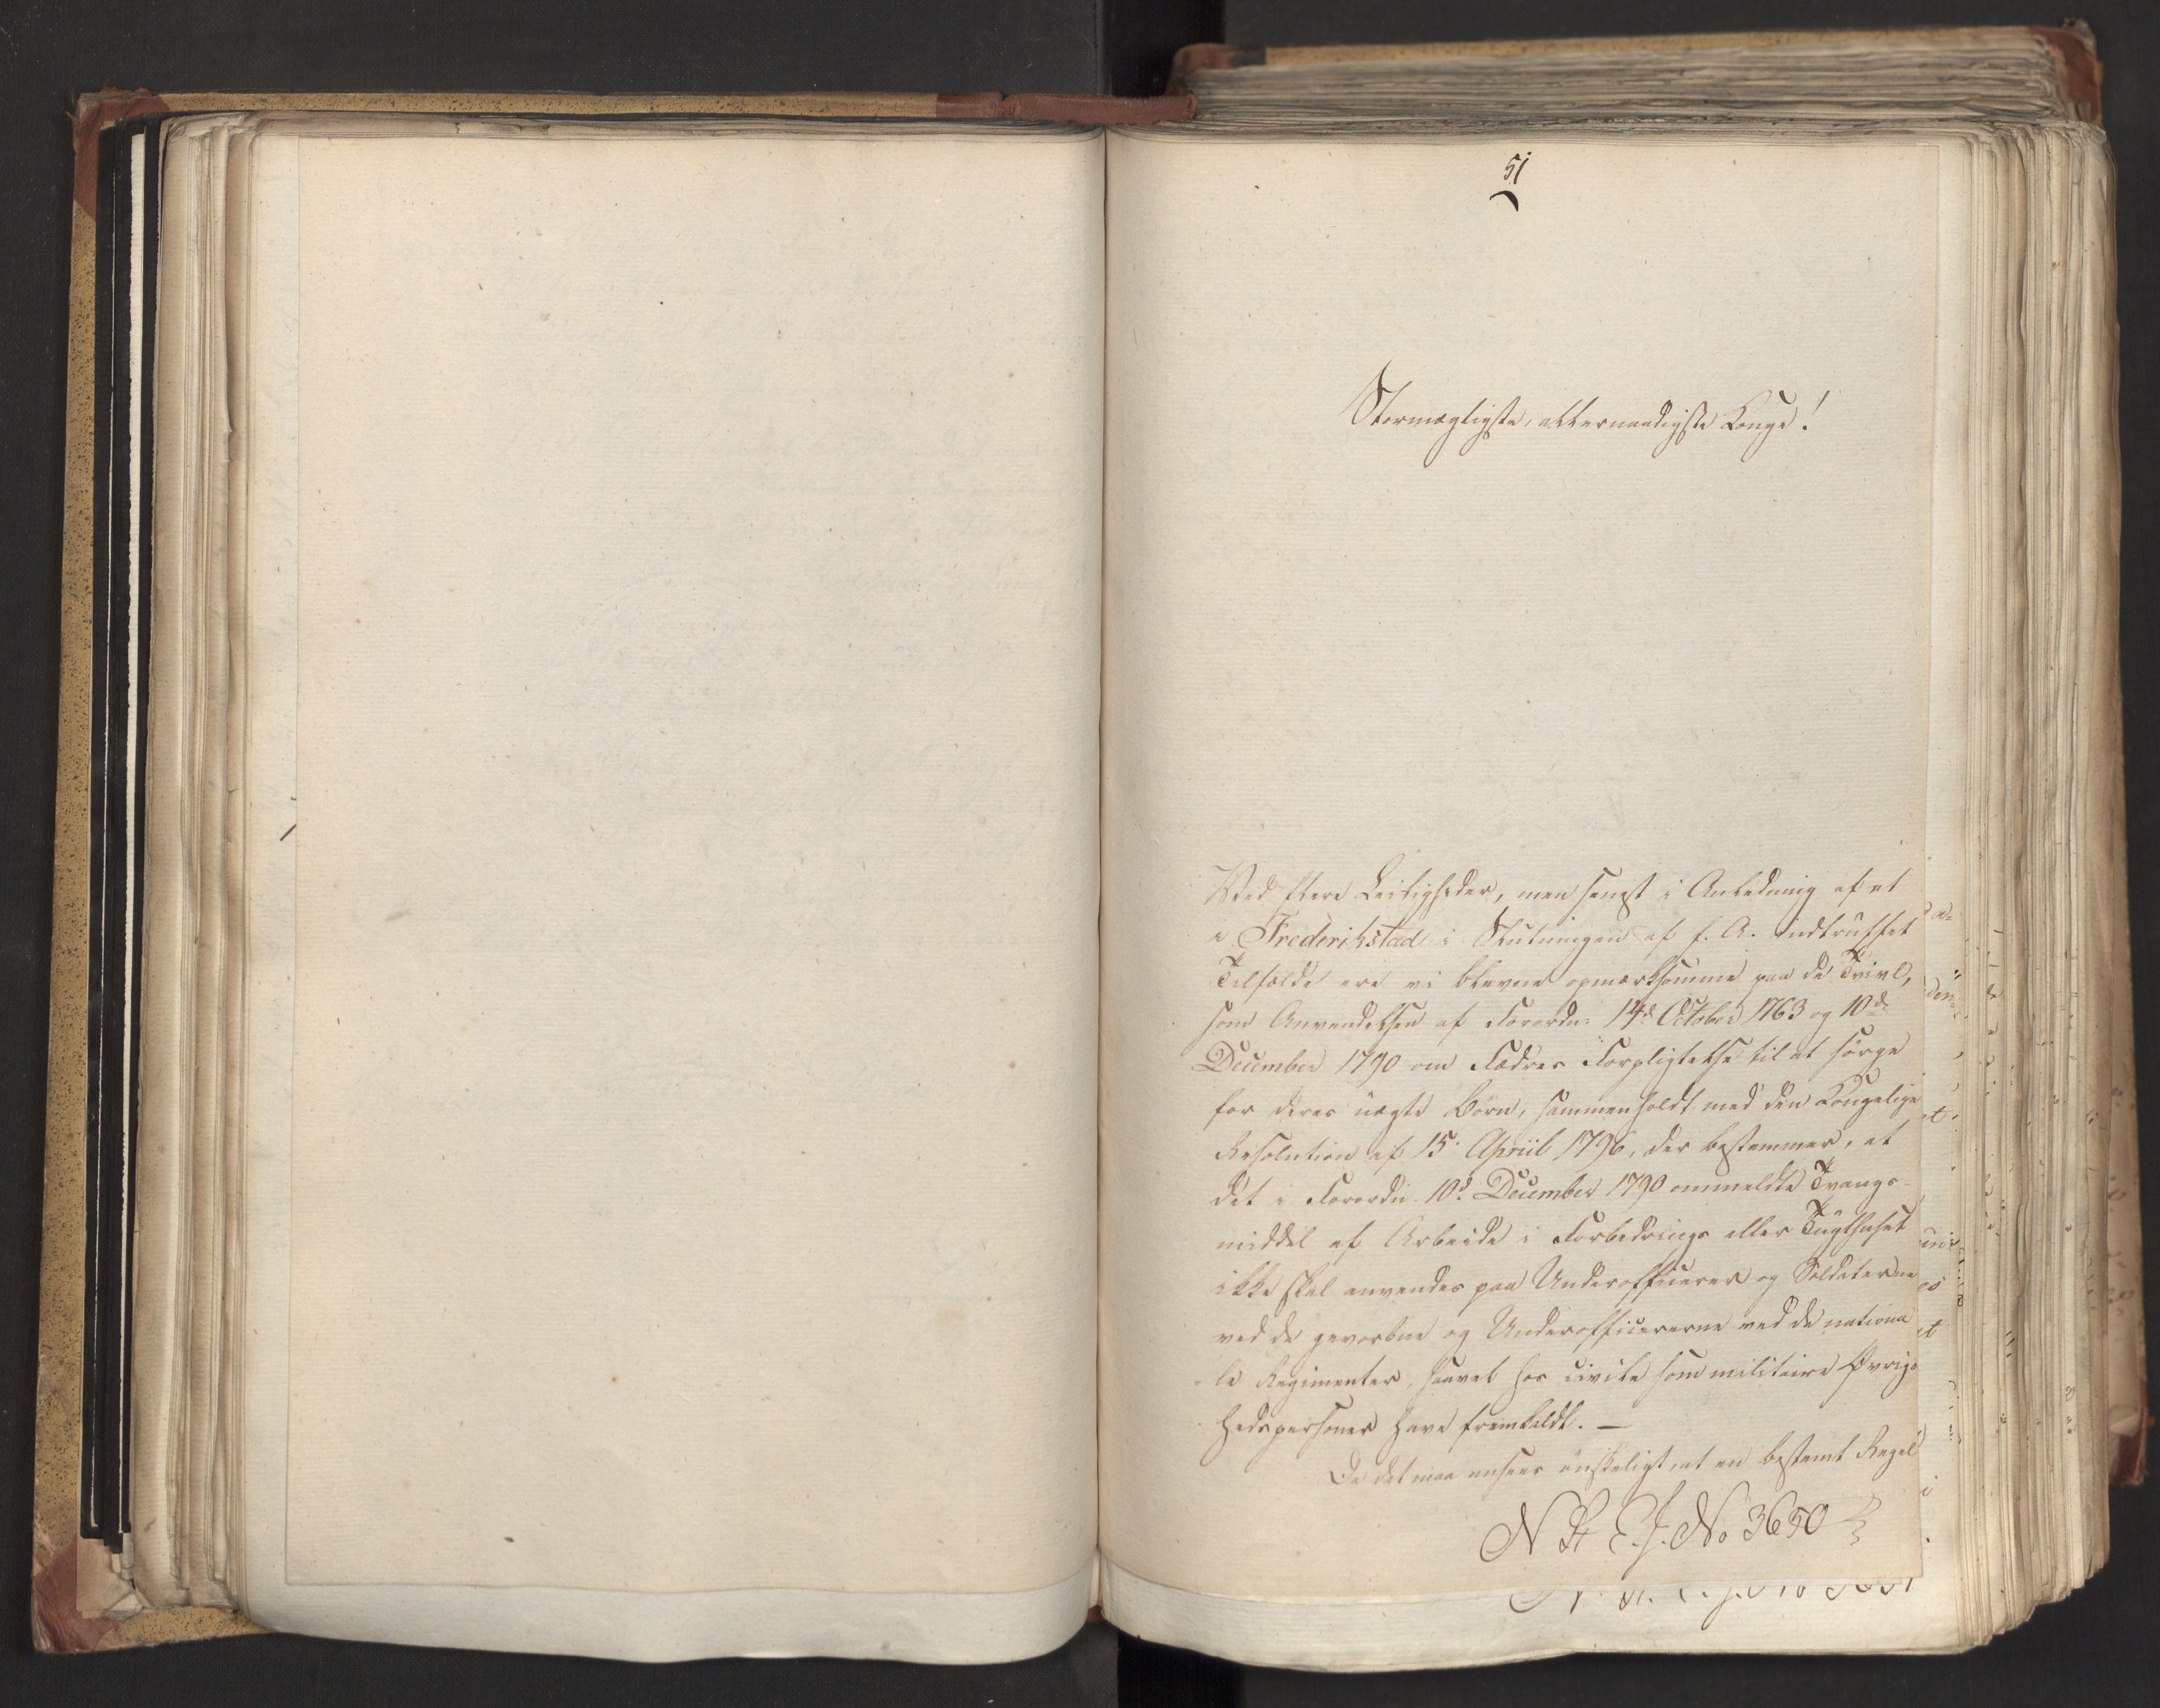 51
Stormægtigste, allernaadigste Konge!
Ved flere Leiligheder, men senest i Anledning af et
i Frederikstad i Slutningen af f. A. indtruffet
Tilfælde ere vi blevne opmærksomme paa de Tvivl,
som Anvendelsen af Forordn: 14de October 1763 og 10de
December 1790 om Fædres Forpligtelse til at sørge
for deres uægte Børn, sammenholdt med den Kongelige
Resolution af 15. April 1796, der bestemmer, at
det i Forordn. 10de December 1790 ommeldte Tvangs-
middel af Arbeide i Forbedrings eller Tugthuset
ikke skal anvendes paa Underofficerer og Soldaterne
ved de gevorbne og Underofficererne ved de nationa
le Regimenter, saavel hos civile som militaire Øvrig-
hedspersoner have fremkaldt. —
Da det maa ansees ønskeligt, at en bestemt Regel
N R E. J. No 3650